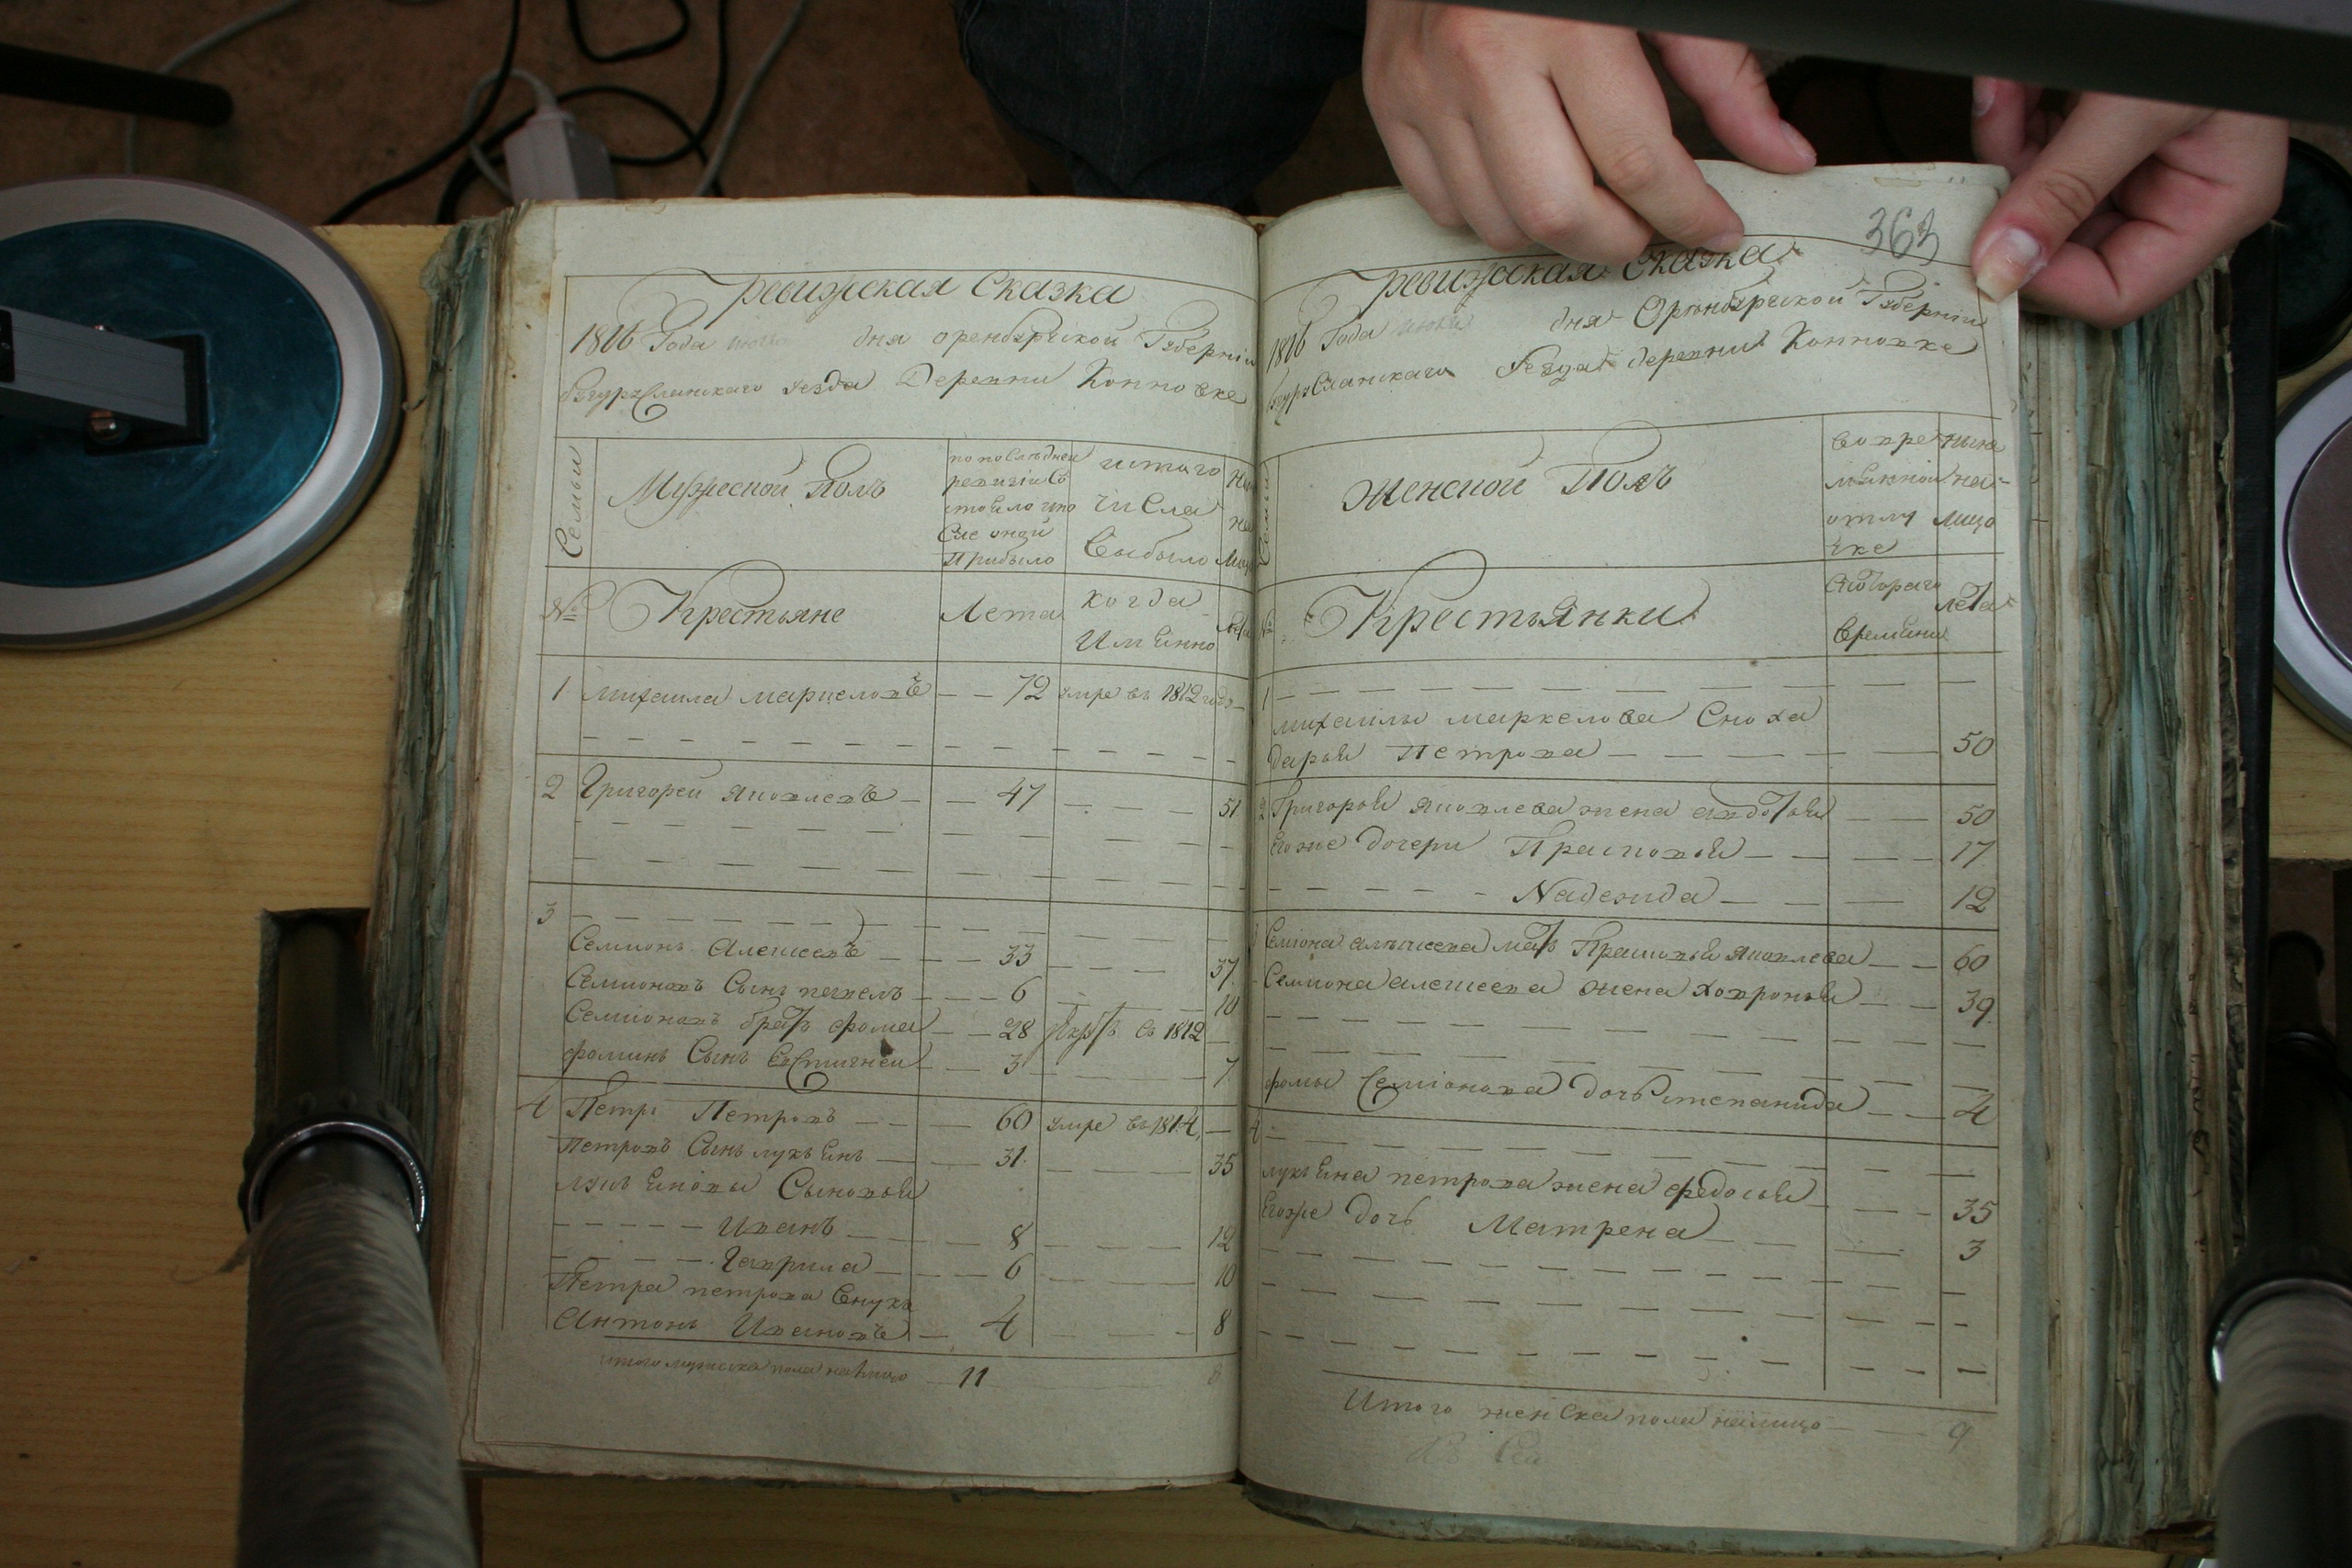 Ревижская Сказка
1816 Года июня дня оренбурской Губернии
бугурусланскаго уезда Деревни Конновке
Семьи
Мужеской Полъ
по последней
ревизіи со
стояло и по
сле оной
Прибыло
ис того
числа
Выбыло
№
Крестьяне
Лета
когда
Имѣнно
1 михаила маркеловъ 72 умре въ 1812 годъ
2 Григореи яковлевъ 47 51
3
Семионъ Алексеевъ 33 37
Семионовъ Сынъ павелъ 6 10
Семионовъ братъ фома 28 въ 1812
фоминъ Сынъ Евстигнеи 3 7
4 Петръ Петровъ 60 умре въ 1814
Петровъ Сынъ лукьянъ 31 35
лукьяновы Сыновьи
Иванъ 8 12
Гаврила 6 10
Петра петрова Внукъ
Антонъ Ивановъ 4 8
итого мужеска пола налицо 11
363
Ревижская Сказка
1816 Года июня дня Оренбурской Губернии
бугурусланскаго уезда деревни Конновке
Семьи
Женской Полъ
во вре
мянной
отлу
чке
ныне
на
лицо
№
Крестьянки
с котораго
времени
лета
1
михаилы маркелова Сноха
дарья Петрова 50
2 Григорья яковлева жена авдотья 50
Егоже дочери Прасковья 17
Надежда 12
3 Семиона алексеева мать Прасковья яковлева 60
Семиона алексеева жена ховронья 39
фомы Семионова дочь степанида 4
4
лукьяна петрова жена федосья 35
Егоже дочь Матрена 3
Итого женска пола налицо 9